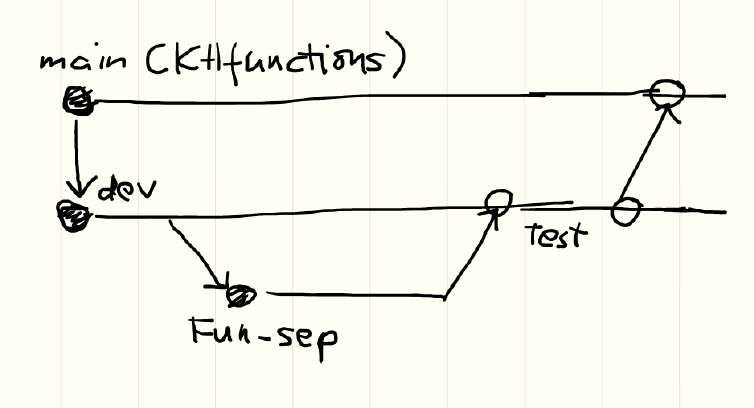 main (KHfunctions)
dev
test
Fun-sep